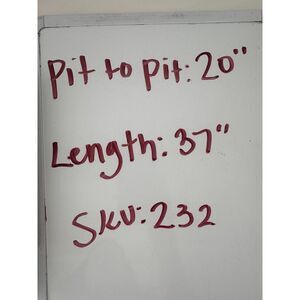 Pit to pit: 20"
Length: 37"
SKU: 232